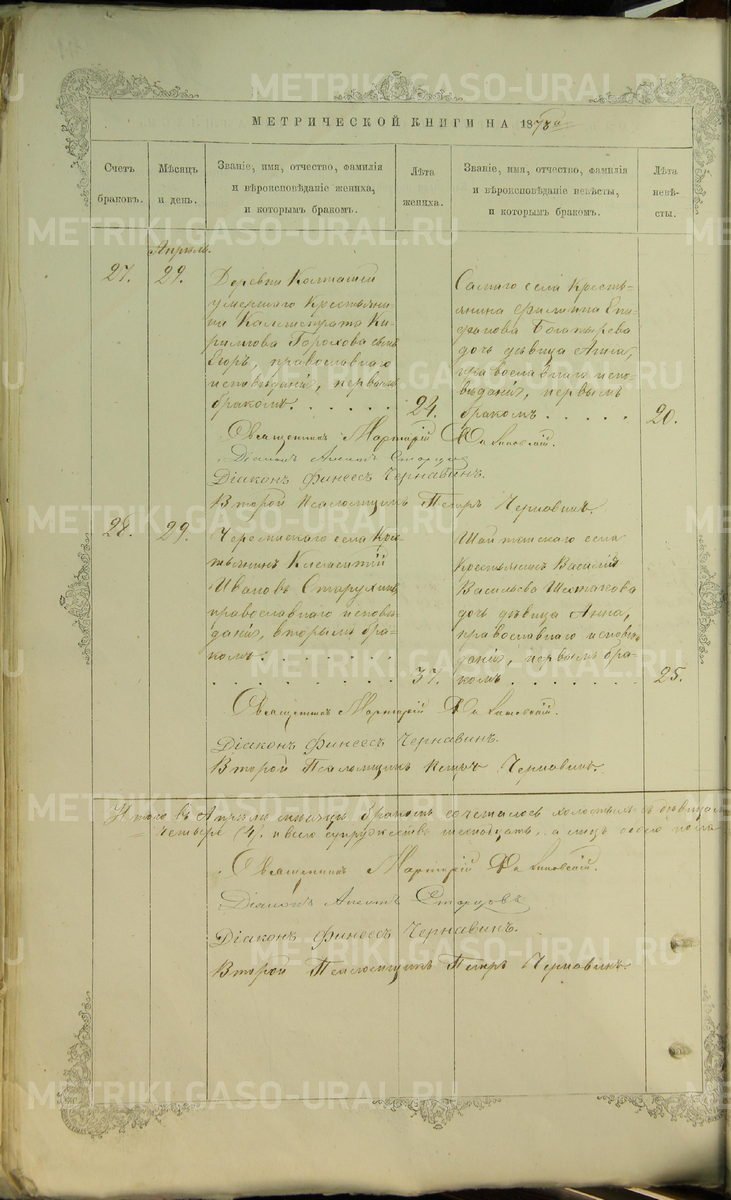 МЕТРИЧЕСКОЙ КНИГИ НА 18
Счетъ браковъ.
Мѣсяцъ и день.
Званіе, имя, отчество, фамилія
и вѣроисповѣданіе жениха,
и которымъ бракомъ.
Лѣта жениха.
Званіе, имя, отчество, фамилія
и вѣроисповѣданіе невѣсты,
и которымъ бракомъ.
Лѣта невѣ-
сты.
Апрѣль.
27.
29.
Деревни Колташей
умершаго Крестьяни-
на Каллистрата Ки-
рилова Горохова сынъ
Егоръ, православнаго
исповѣданія, первымъ
бракомъ.
24.
Самаго села Кресть-
янина Филиппа Епи-
фанова Богатырева
дочь дѣвица Анна,
православнаго испо-
вѣданія, первымъ
бракомъ
20.
Священникъ Мартирій
Діаконъ
Діаконъ Финеесъ Чернавинъ.
Второй Псаломщикъ Петръ Чернавинъ.
28.
29.
Черемисскаго села Кре-
стьянинъ Климентій
Ивановъ Старухинъ
православнаго исповѣ-
данія, вторымъ бра-
комъ.
37.
Шайтанскаго села
Василія
Васильева
дочь дѣвица Анна,
православнаго исповѣ-
данія, первымъ бра-
комъ
25.
Священникъ Мартирій
Діаконъ Финеесъ Чернавинъ.
Второй Псаломщикъ Петръ Чернавинъ.
Итого въ Апрѣлѣ мѣсяцѣ бракомъ сочеталось холостыхъ съ дѣвицами
четыре (4), а всего супружествъ а лицъ обоего пола
Священникъ Мартирій
Діаконъ Старцовъ
Діаконъ Финеесъ Чернавинъ.
Второй Псаломщикъ Петръ Чернавинъ.
METRIKI.GASO-URAL.RU